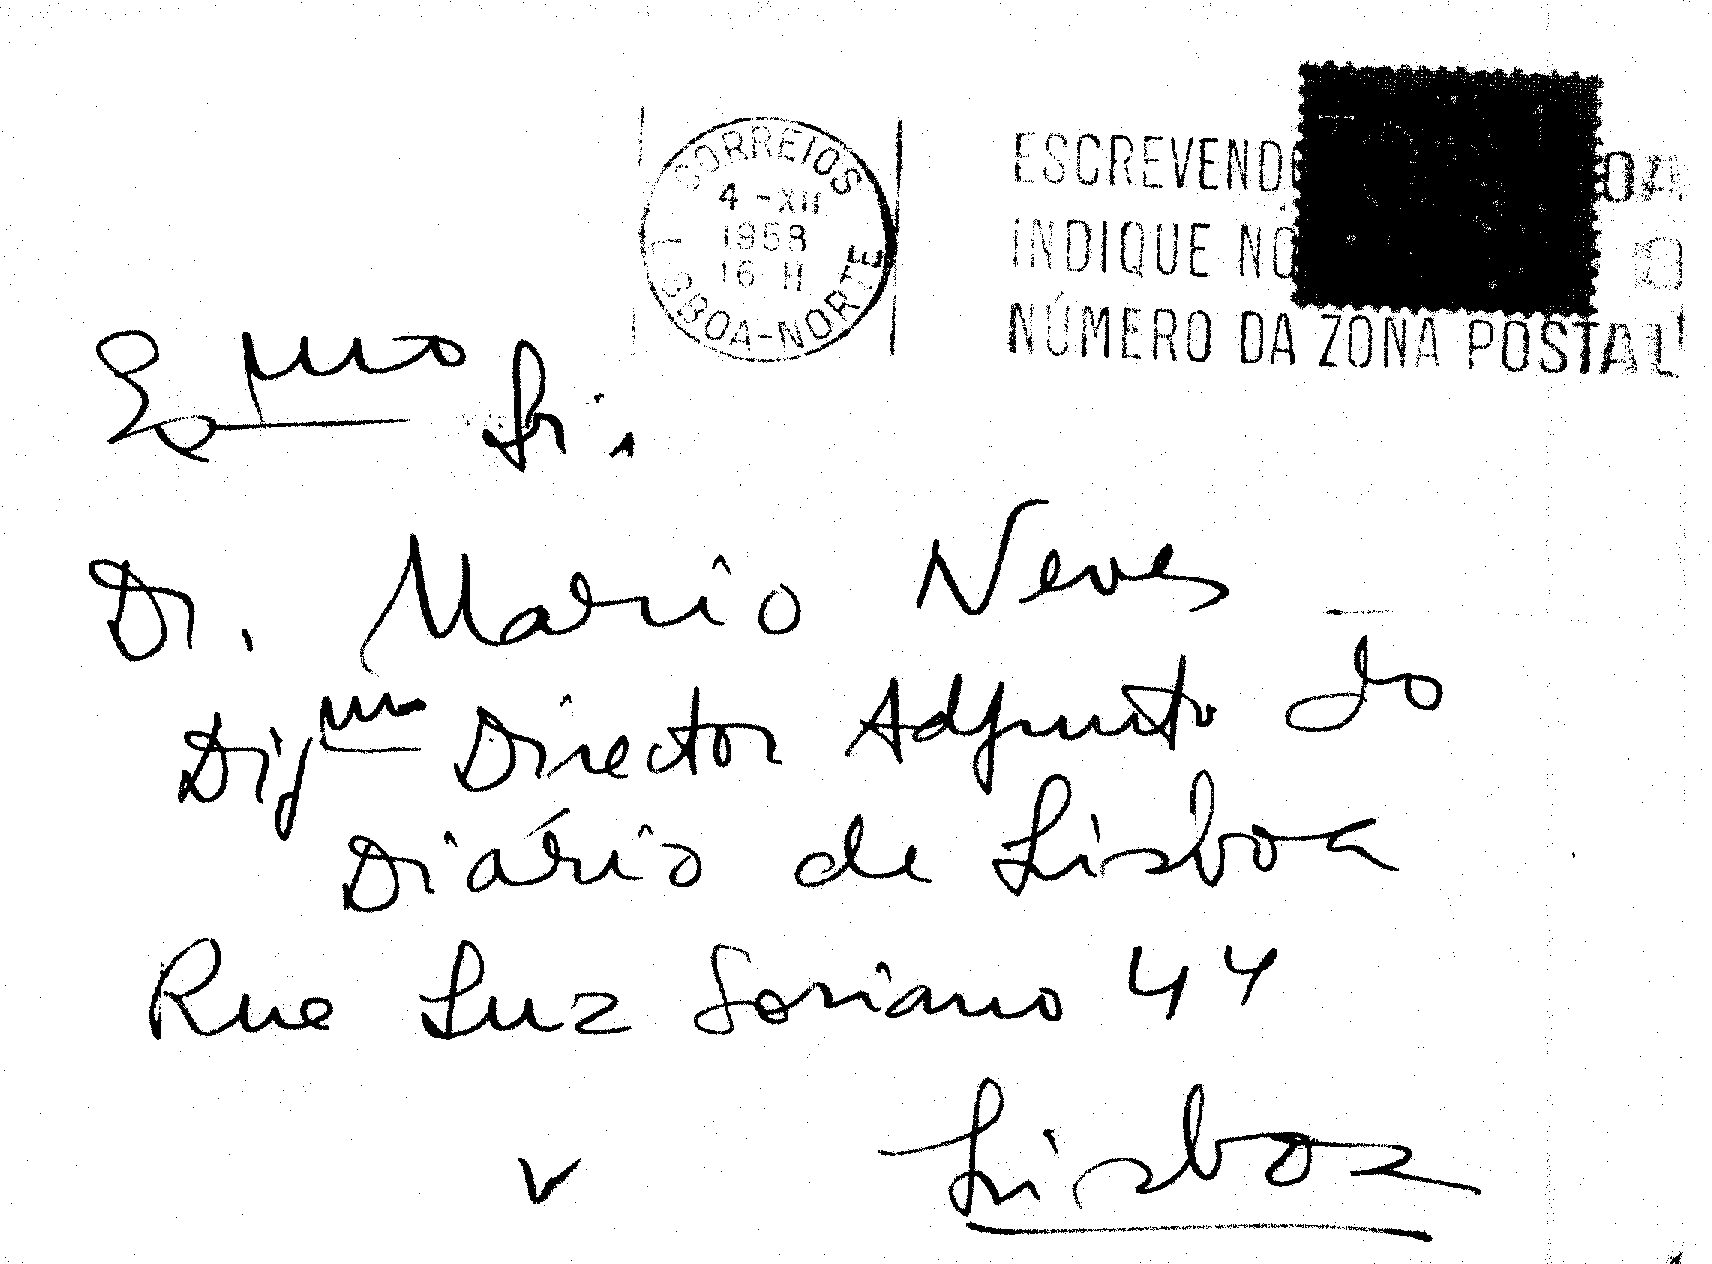 CORREIOS
4-XII
1968
16 H
LISBOA-NORTE
ESCREVENDO
INDIQUE NO
NÚMERO DA ZONA POSTAL
Exmo Sr.
Dr. Mario Neves
Digmo Director Adjunto do
Diário de Lisboa
Rua Luz Soriano 44
Lisboa